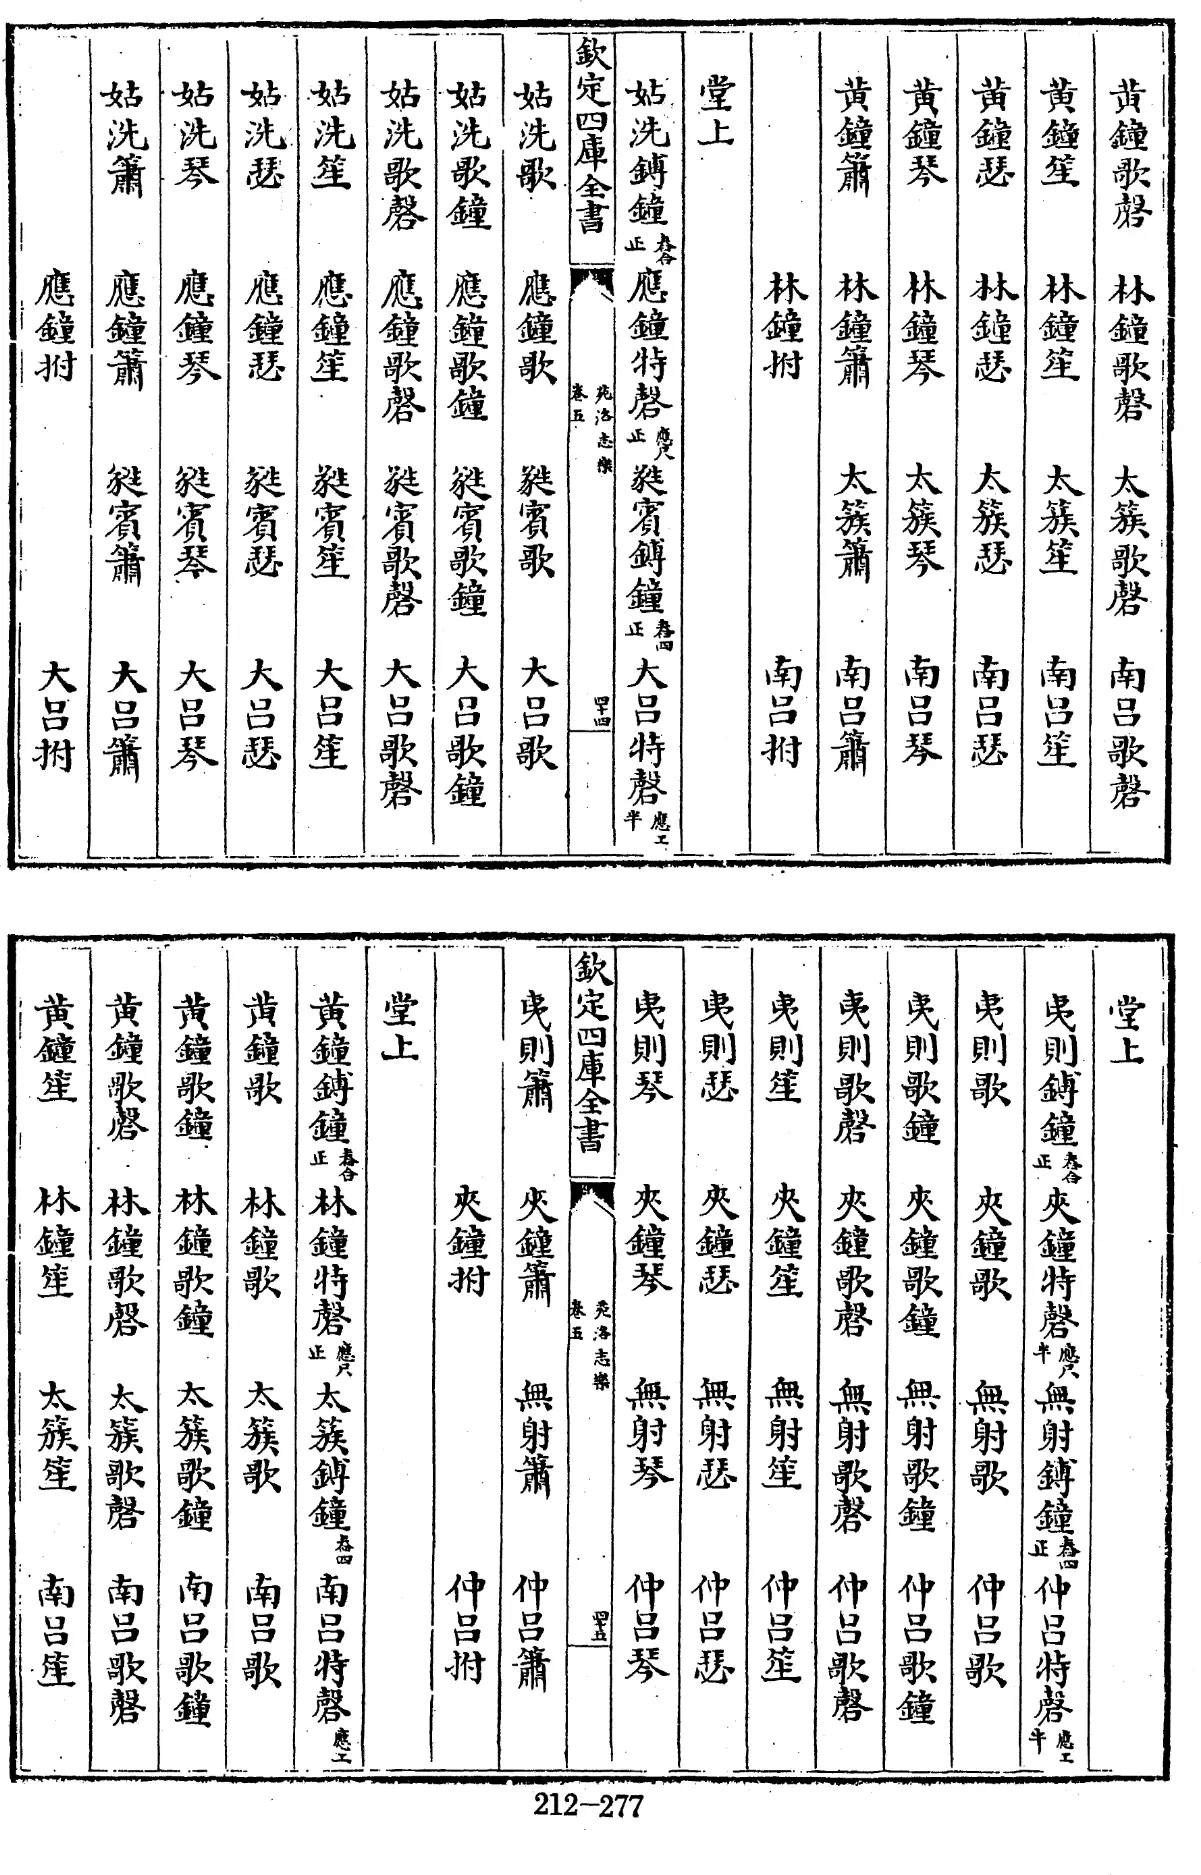 黄鐘歌磬 林鐘歌磬 太簇歌磬 南呂歌磬
黄鐘笙 林鐘笙 太簇笙 南呂笙
黄鐘瑟 林鐘瑟 太簇瑟 南呂瑟
黄鐘琴 林鐘琴 太簇琴 南呂琴
黄鐘簫 林鐘簫 太簇簫 南呂簫
林鐘拊 南呂拊
堂上
姑洗鎛鐘春合正 應鐘特磬應尺正 蕤賓鎛鐘春四正 大呂特磬應工半
欽定四庫全書 苑洛志樂卷五 四十四
姑洗歌 應鐘歌 蕤賓歌 大呂歌
姑洗歌鐘 應鐘歌鐘 蕤賓歌鐘 大呂歌鐘
姑洗歌磬 應鐘歌磬 蕤賓歌磬 大呂歌磬
姑洗笙 應鐘笙 蕤賓笙 大呂笙
姑洗瑟 應鐘瑟 蕤賓瑟 大呂瑟
姑洗琴 應鐘琴 蕤賓琴 大呂琴
姑洗簫 應鐘簫 蕤賓簫 大呂簫
應鐘拊 大呂拊
堂上
夷則鎛鐘春合正 夾鐘特磬應尺半 無射鎛鐘春四正 仲呂特磬應工半
夷則歌 夾鐘歌 無射歌 仲呂歌
夷則歌鐘 夾鐘歌鐘 無射歌鐘 仲呂歌鐘
夷則歌磬 夾鐘歌磬 無射歌磬 仲呂歌磬
夷則笙 夾鐘笙 無射笙 仲呂笙
夷則瑟 夾鐘瑟 無射瑟 仲呂瑟
夷則琴 夾鐘琴 無射琴 仲呂琴
欽定四庫全書 苑洛志樂卷五 四十五
夷則簫 夾鐘簫 無射簫 仲呂簫
夾鐘拊 仲呂拊
堂上
黄鐘鎛鐘春合正 林鐘特磬應尺正 太簇鎛鐘春四 南呂特磬應工
黄鐘歌 林鐘歌 太簇歌 南呂歌
黄鐘歌鐘 林鐘歌鐘 太簇歌鐘 南呂歌鐘
黄鐘歌磬 林鐘歌磬 太簇歌磬 南呂歌磬
黄鐘笙 林鐘笙 太簇笙 南呂笙
212-277